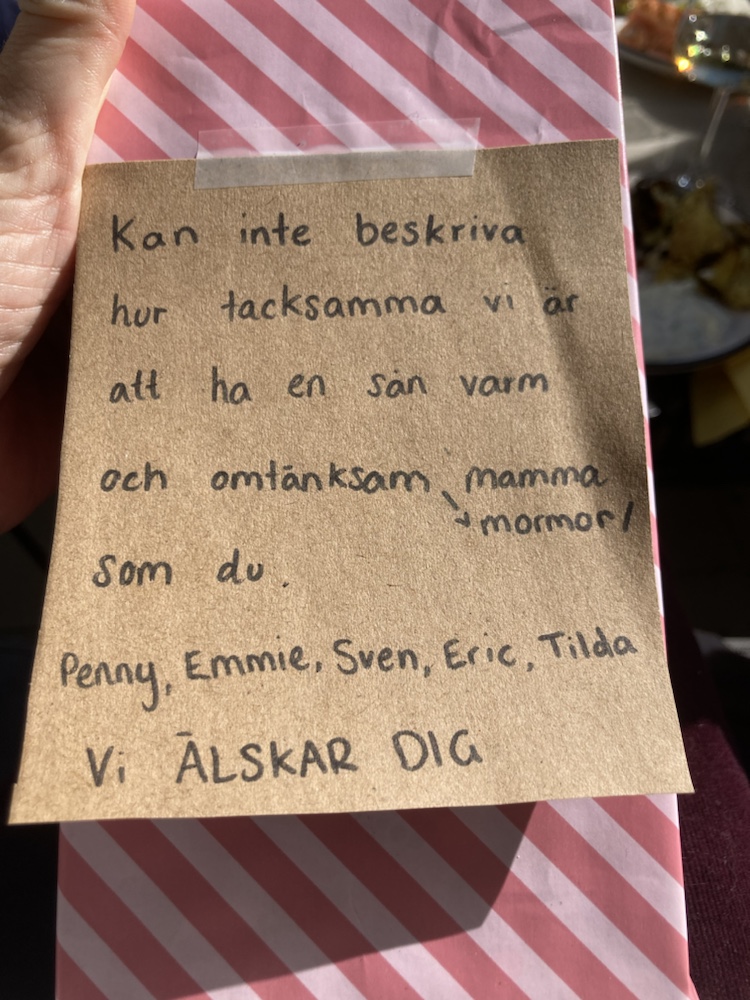 Kan inte beskriva
hur tacksamma vi är
att ha en sån varm
och omtänksam mamma
mormor/
som du.
Penny, Emmie, Sven, Eric, Tilda
Vi ÄLSKAR DIG